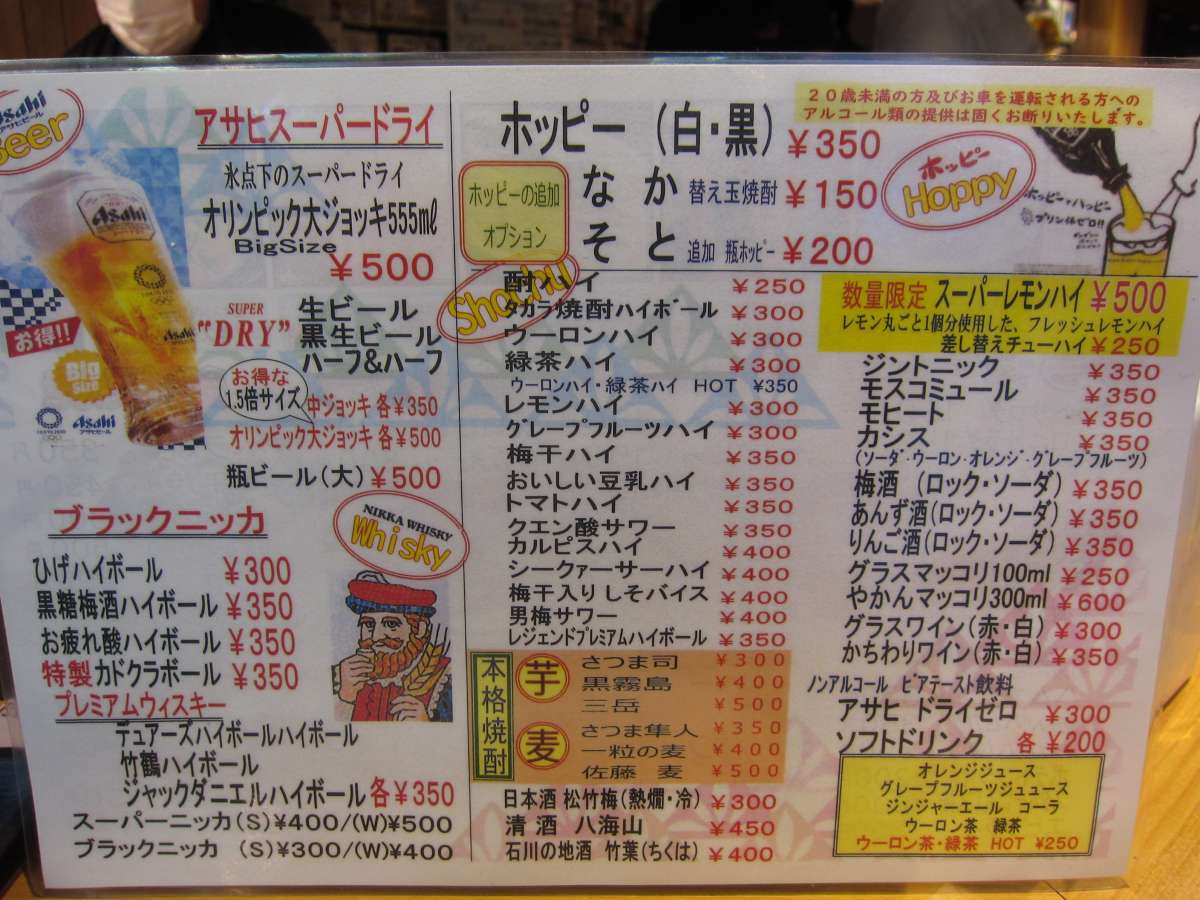 Asahi
アサヒビール
Beer
アサヒスーパードライ
氷点下のスーパードライ
オリンピック大ジョッキ555ml
BigSize
¥500
お得!!
Big
size
Asahi
アサヒビール
SUPER
"DRY"
生ビール
黒生ビール
ハーフ&ハーフ
お得な
1.5倍サイズ
中ジョッキ 各¥350
オリンピック大ジョッキ 各¥500
瓶ビール(大) ¥500
ブラックニッカ
NIKKA WHISKY
Whisky
ひげハイボール ¥300
黒糖梅酒ハイボール ¥350
お疲れ酸ハイボール ¥350
特製カドクラボール ¥350
プレミアムウィスキー
デュアーズハイボールハイボール
竹鶴ハイボール
ジャックダニエルハイボール 各¥350
スーパーニッカ(S)¥400/(W)¥500
ブラックニッカ (S)¥300/(W)¥400
20歳未満の方及びお車を運転される方への
アルコール類の提供は固くお断りいたします。
ホッピー (白・黒) ¥350
ホッピーの追加
オプション
なか 替え玉焼酎 ¥150
そと 追加 瓶ホッピー ¥200
ホッピー
Hoppy
ホッピーでハッピー
プリン体ゼロ!!
酎ハイ ¥250
タカラ焼酎ハイボール ¥300
ウーロンハイ ¥300
緑茶ハイ ¥300
ウーロンハイ・緑茶ハイ HOT ¥350
レモンハイ ¥300
グレープフルーツハイ ¥300
梅干ハイ ¥350
おいしい豆乳ハイ ¥350
トマトハイ ¥350
クエン酸サワー ¥350
カルピスハイ ¥400
シークァーサーハイ ¥400
梅干入りしそバイス ¥400
男梅サワー ¥400
レジェンドプレミアムハイボール ¥350
本格焼酎
芋
さつま司 ¥300
黒霧島 ¥400
三岳 ¥500
麦
さつま隼人 ¥350
一粒の麦 ¥400
佐藤 麦 ¥500
日本酒 松竹梅(熱燗・冷) ¥300
清酒 八海山 ¥450
石川の地酒 竹葉(ちくは) ¥400
数量限定 スーパーレモンハイ ¥500
レモン丸ごと1個分使用した、フレッシュレモンハイ
差し替えチューハイ ¥250
ジントニック ¥350
モスコミュール ¥350
モヒート ¥350
カシス ¥350
(ソーダ・ウーロン・オレンジ・グレープフルーツ)
梅酒 (ロック・ソーダ) ¥350
あんず酒(ロック・ソーダ) ¥350
りんご酒(ロック・ソーダ) ¥350
グラスマッコリ100ml ¥250
やかんマッコリ300ml ¥600
グラスワイン(赤・白) ¥300
かちわりワイン(赤・白) ¥350
ノンアルコール ビアテースト飲料
アサヒ ドライゼロ ¥300
ソフトドリンク 各¥200
オレンジジュース
グレープフルーツジュース
ジンジャーエール コーラ
ウーロン茶 緑茶
ウーロン茶・緑茶 HOT ¥250